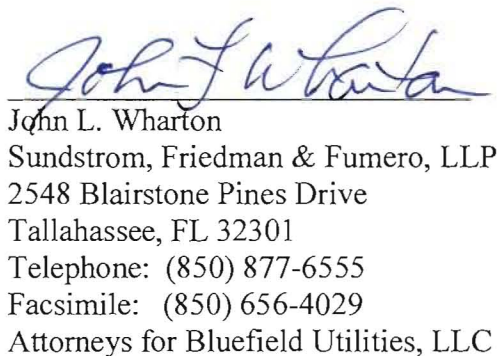 John Wharton
John L. Wharton
Sundstrom, Friedman & Fumero, LLP
2548 Blairstone Pines Drive
Tallahassee, FL 32301
Telephone: (850) 877-6555
Facsimile: (850) 656-4029
Attorneys for Bluefield Utilities, LLC